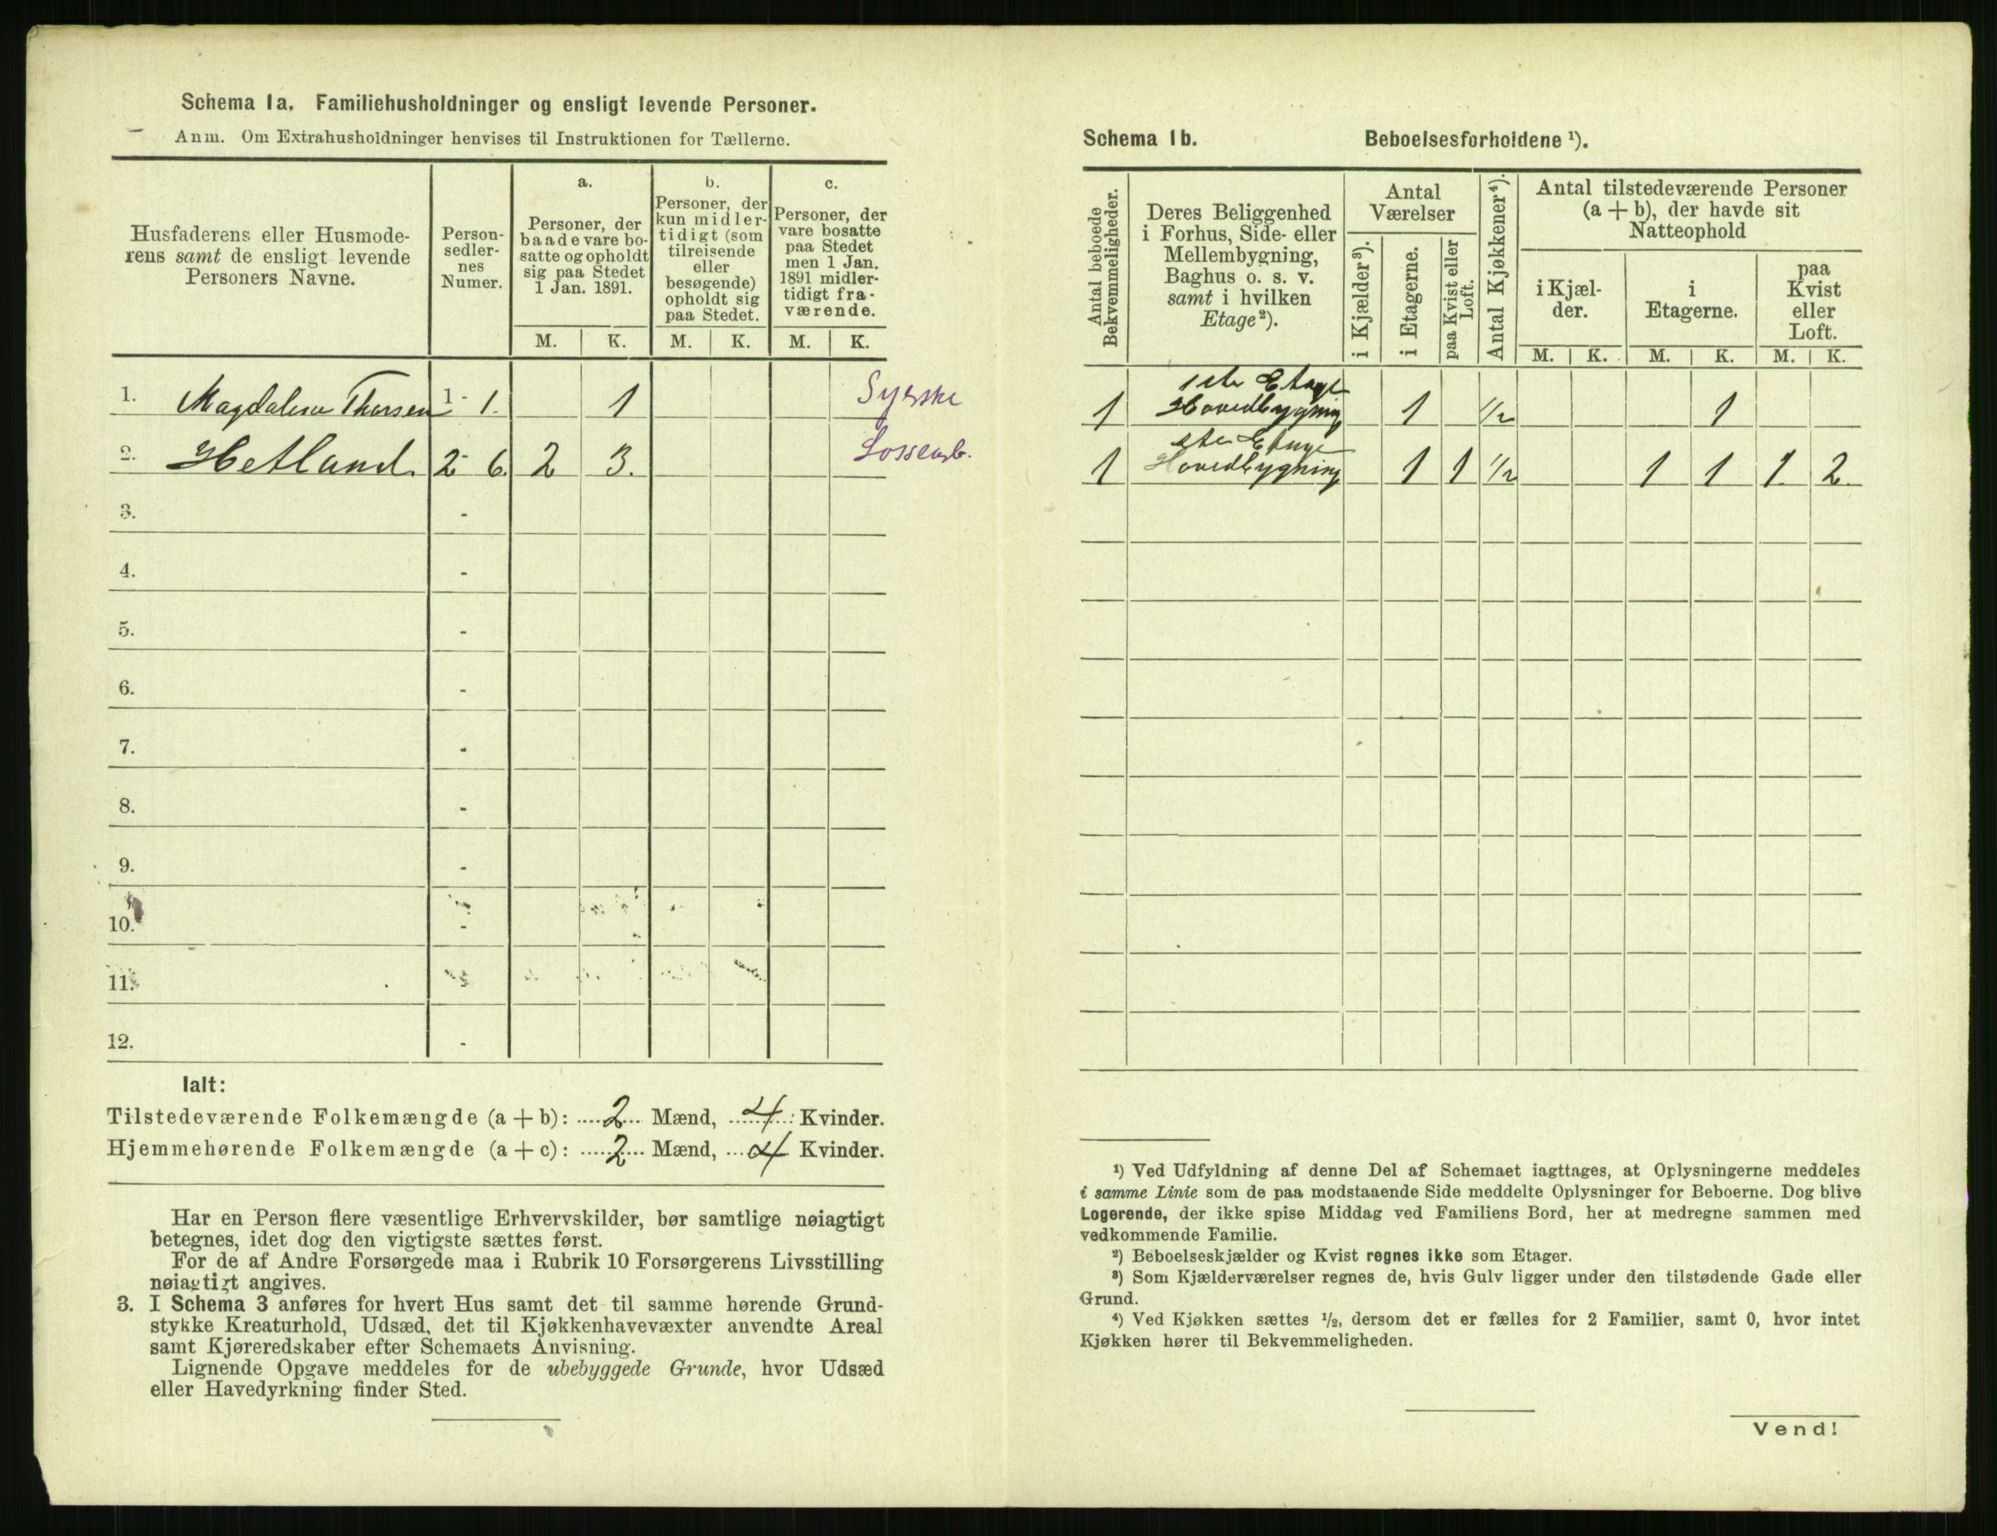 Schema 1a. Familiehusholdninger og ensligt levende Personer.
Anm. Om Extrahusholdninger henvises til Instruktionen for Tællerne.
Husfaderens eller Husmode-
rens samt de ensligt levende
Personers Navne.
Person-
sedler-
nes
Numer.
a.
Personer, der
baade vare bo-
satte og opholdt
sig paa Stedet
1 Jan. 1891.
b.
Personer, der
kun midler-
tidigt (som
tilreisende
eller
besøgende)
opholdt sig
paa Stedet.
c.
Personer, der
vare bosatte
paa Stedet
men 1 Jan.
1891 midler-
tidigt fra-
værende.
M. K. M. K. M. K.
1. Magdalena Thorsen 1 - 1. 1 Syerske
2. Hetland. 2 - 6 2 3.
3. -
4. -
5. -
6. -
7. -
8. -
9. -
10. -
11.
12. -
Ialt:
Tilstedeværende Folkemængde (a + b): 2 Mænd, 4 Kvinder.
Hjemmehørende Folkemængde (a + c): 2 Mænd, 4 Kvinder.
Har en Person flere væsentlige Erhvervskilder, bør samtlige nøiagtigt
betegnes, idet dog den vigtigste sættes først.
For de af Andre Forsørgede maa i Rubrik 10 Forsørgerens Livsstilling
nøiagtigt angives.
3. I Schema 3 anføres for hvert Hus samt det til samme hørende Grund-
stykke Kreaturhold, Udsæd, det til Kjøkkenhavevæxter anvendte Areal
samt Kjøreredskaber efter Schemaets Anvisning.
Lignende Opgave meddeles for de ubebyggede Grunde, hvor Udsæd
eller Havedyrkning finder Sted.
Schema 1b. Beboelsesforholdene ¹).
Antal beboede
Bekvemmeligheder.
Deres Beliggenhed
i Forhus, Side- eller
Mellembygning,
Baghus o. s. v.
samt i hvilken
Etage²).
Antal
Værelser
i Kjælder³).
i Etagerne.
paa Kvist eller
Loft.
Antal Kjøkkener⁴).
Antal tilstedeværende Personer
(a + b), der havde sit
Natteophold
i Kjæl-
der.
i
Etagerne.
paa
Kvist
eller
Loft.
M. K. M. K. M. K.
1ste Etage
1 Hovedbygning 1 1/2 1
Etage
1 Hovedbygning 1 1 1/2 1 1 1. 2.
¹) Ved Udfyldning af denne Del af Schemaet iagttages, at Oplysningerne meddeles
i samme Linie som de paa modstaaende Side meddelte Oplysninger for Beboerne. Dog blive
Logerende, der ikke spise Middag ved Familiens Bord, her at medregne sammen med
vedkommende Familie.
²) Beboelseskjælder og Kvist regnes ikke som Etager.
³) Som Kjælderværelser regnes de, hvis Gulv ligger under den tilstødende Gade eller
Grund.
⁴) Ved Kjøkken sættes ½, dersom det er fælles for 2 Familier, samt 0, hvor intet
Kjøkken hører til Bekvemmeligheden.
Vend!